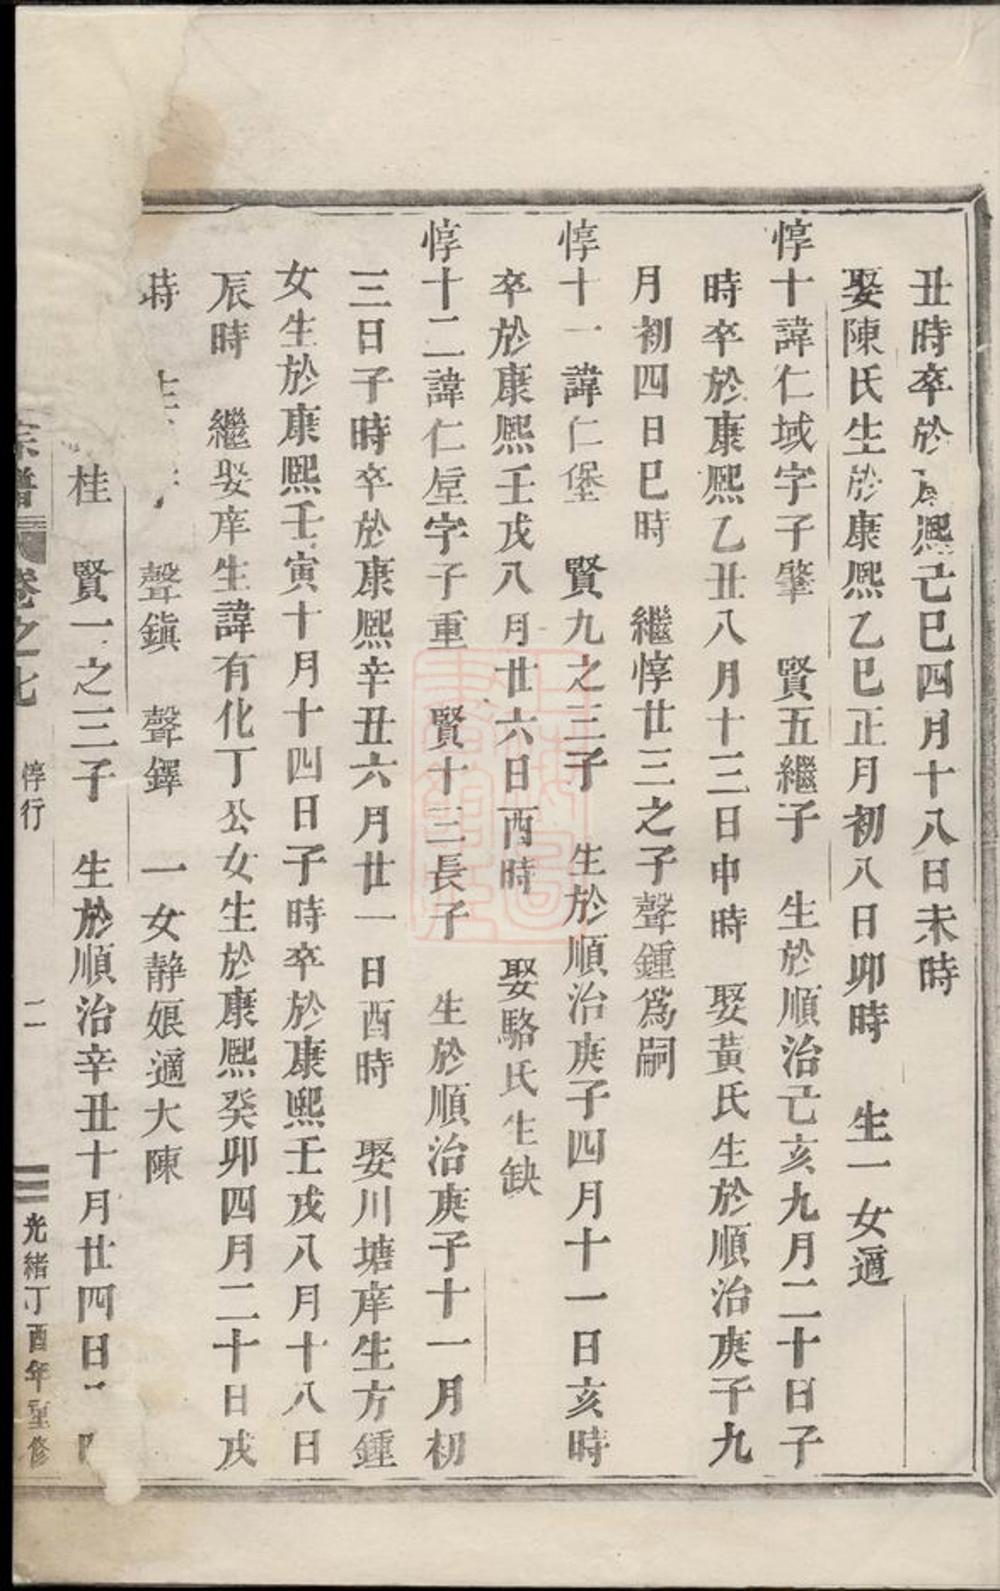 丑時卒於康熙己巳四月十八日未時
娶陳氏生於康熙乙巳正月初八日卯時　生一女適
惇十諱仁域字子肇　賢五繼子　生於順治己亥九月二十日子
時卒於康熙乙丑八月十三日申時　娶黃氏生於順治庚子九
月初四日巳時　繼惇廿三之子聲鍾為嗣
惇十一諱仁堡　賢九之三子　生於順治庚子四月十一日亥時
卒於康熙壬戌八月廿六日酉時　娶駱氏生缺
惇十二諱仁垕字子重　賢十三長子　生於順治庚子十一月初
三日子時卒於康熙辛丑六月廿一日酉時　娶川塘庠生方鍾
女生於康熙壬寅十月十四日子時卒於康熙壬戌八月十八日
辰時　繼娶庠生諱有化丁公女生於康熙癸卯四月二十日戌
時　生　聲鎮　聲鐸　一女靜娘適大陳
桂　賢一之三子　生於順治辛丑十月廿四日
宗譜　卷之七　惇行　二　光緒丁酉年重修